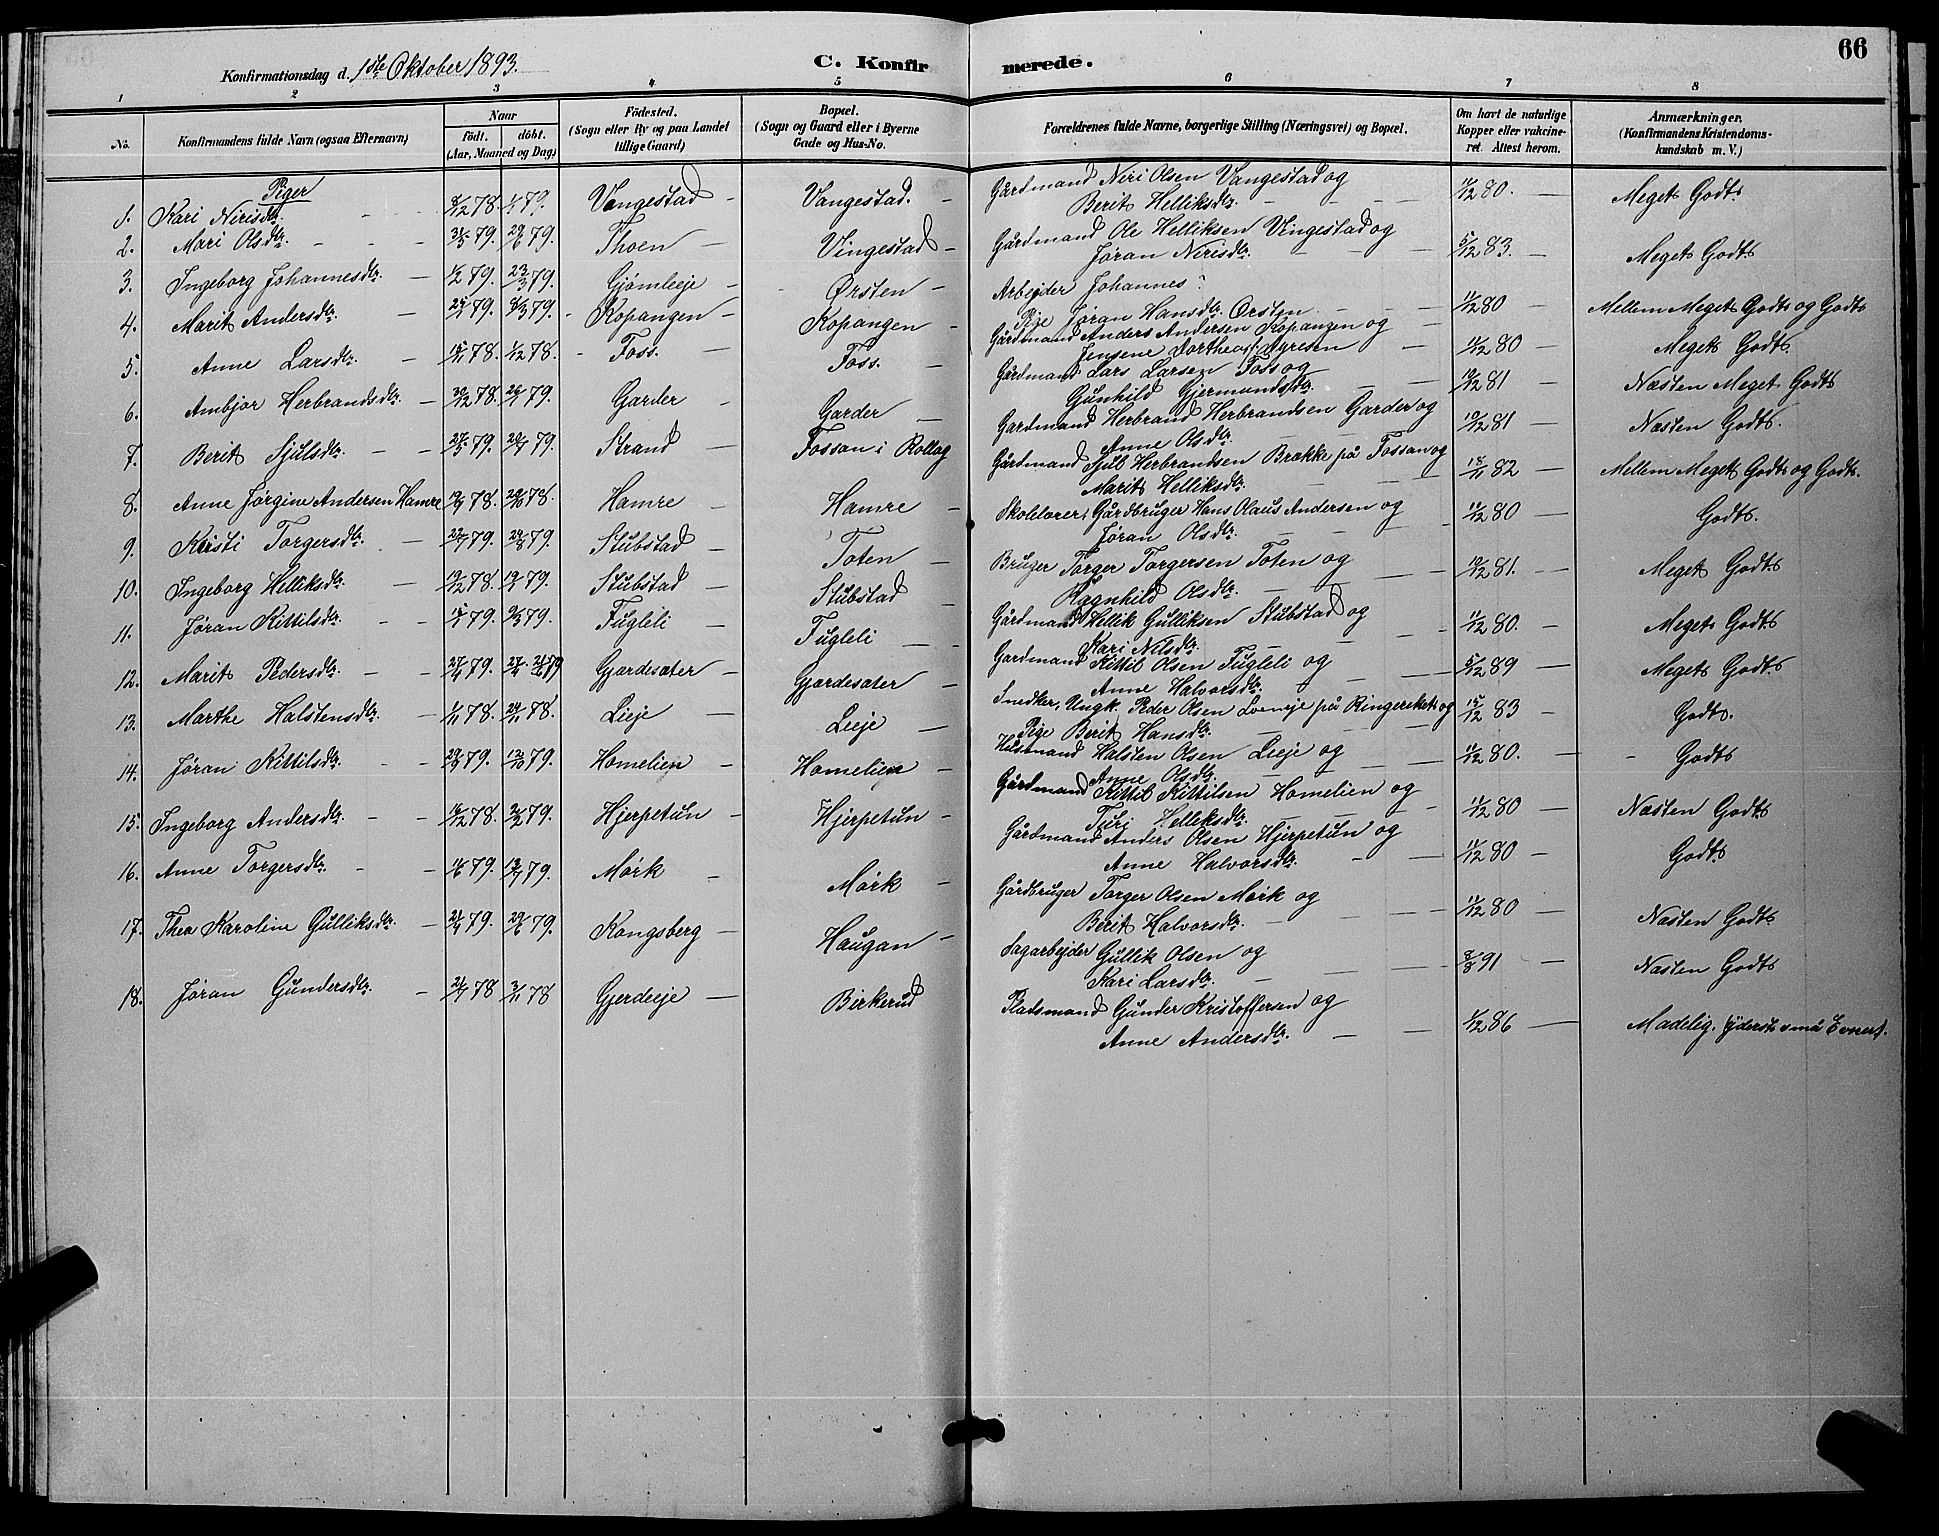 66
Konfirmationsdag d. 1ste Oktober 1893. C. Konfir merede.
1 2 3 4 5 6 7 8
No. Konfirmandens fulde Navn (ogsaa Efternavn) Naar födt. döbt. (Aar, Maaned og Dag) Födested. (Sogn eller By og paa Landet tillige Gaard) Bopæl. (Sogn og Gaard eller i Byerne Gade og Hus-No. Forældrenes fulde Navne, borgerlige Stilling (Næringsvei) og Bopæl. Om havt de naturlige Kopper eller vakcineret. Attest herom. Anmærkninger. (Konfirmandens Kristendomskundskab m. V.)
Piger
1. Kari Nirisdtr. 78. 79. Vangestad Vangestad. Gårdmand Niri Olsen Vangestad og Berit Helliksdtr. 11/12 80. Meget Godt.
2. Mari Olsdtr. 31/3 79. 29/6 79. Thoen Vingestad Gårdmand Ole Helliksen Vingestad og Jøran Nirisdtr. 5/12 83. Meget Godt
3. Ingeborg Johannesdtr. 1/2 79. 23/3 79. Gjømleeje Ørsten Arbejder Johannes Pige Jøran Hansdtr. Ørsten 11/12 80 Mellem Meget Godt og Godt
4. Marit Andersdtr. 79. 79. Kopangen Kopangen Gårdmand Anders Andersen Kopangen og Jensene Dorthea f. Myresen 11/12 80 Meget Godt.
5. Anne Larsdtr. 15/11 78. 1/12 78. Foss. Foss. Gårdmand Lars Larsen Foss og Gunhild Gjermundsdtr. 10/12 81 Næsten Meget Godt
6. Ambjør Herbrandsdtr. 30/12 78. 26/1 79. Garder Garder Gardmand Herbrand Herbrandsen Garder og Anne Olsdtr. 10/12 81 Næsten Godt.
7. Berit Sjulsdtr. 79. 79. Strand Fossan i Rollag Gårdmand Sjul Herbrandsen Brække på Fossan og Marit Helliksdtr. 18/11 82 Mellem Meget Godt og Godt.
8. Anne Jørgine Andersen Hamre 78. 78. Hamre Hamre Skolelærer, Gårdbruger Hans Olaus Andersen og Jøran Olsdtr. 11/12 80 Godt.
9. Kristi Torgersdtr. 79. 79. Stubstad Toten Bruger Torger Torgersen Toten og Ragnhild Olsdtr. 10/12 81. Meget Godt
10. Ingeborg Helliksdtr. 78. 79. Stubstad Stubstad Gårdmand Hellik Gulliksen Stubstad og Kari Nilsdtr. 11/12 80. Meget Godt
11. Jøran Kittilsdtr. 79. 79. Fugleli Fugleli Gardmand Kittil Olsen Fugleli og Anne Halvorsdtr. 5/12 89 Meget Godt.
12. Marit Pedersdtr. 27/4 79. 79 Gjærdesæter Gjærdesæter Snedker, Ungk. Peder Olsen på Ringerike og Pige Berit Hansdtr. 15/12 83 Godt.
13. Marthe Halstensdtr. 1/11 78. 24/11 78. Lieje Lieje Husmand Halsten Olsen Lieje og Anne Olsdtr. 11/12 80. Godt
14. Jøran Kittilsdtr. 79. 12/10 79. Homelien Homelien Gårdmand Kittil Kittilsen Homelien og Turi Helleksdtr. 11/12 80 Næsten Godt
15. Ingeborg Andersdtr. 78. 79. Hjerpetun Hjerpetun Gårdmand Anders Olsen Hjerpetun og Anne Halvorsdtr. 11/12 80 Godt
16. Anne Torgersdtr. 79. 79. Mørk Mørk Gårdbruger Torger Olsen Mørk og Berit Halvorsdtr. 11/12 80 Næsten Godt.
17. Thea Karoline Gulliksdtr. 79. 79. Kongsberg Haugan Sagarbejder Gullik Olsen og Kari Larsdtr. 91 Næsten Godt
18. Jøran Gundersdtr. 78 3/11 78 Gjerdeeje Birkerud Pladsmand Gunder Kristoffersen og Anne Andersdtr. 1/12 86 Madelig. yderst små Evner.